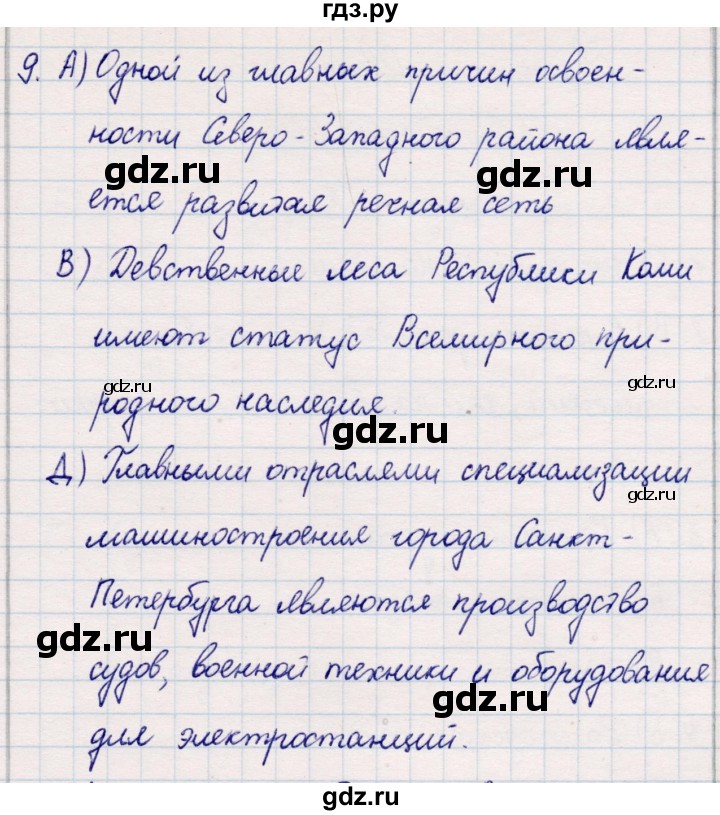 гдз.ру
9. А) Одной из главных причин освоен-
ности Северо-Западного района явля-
gdz.ru gdz.ru
ется развитая речная сеть
В) Девственные леса Республики Коми
имеют статус Всемирного при-
gdz.ru gdz.ru
родного наследия.
gdz.ru
Д) Главными отраслями специализации
gdz.ru
машиностроения города Санкт-
Петербурга являются производство
gdz.ru
судов, военной техники и оборудования
gdz.ru
для электростанций.
gdz.ru